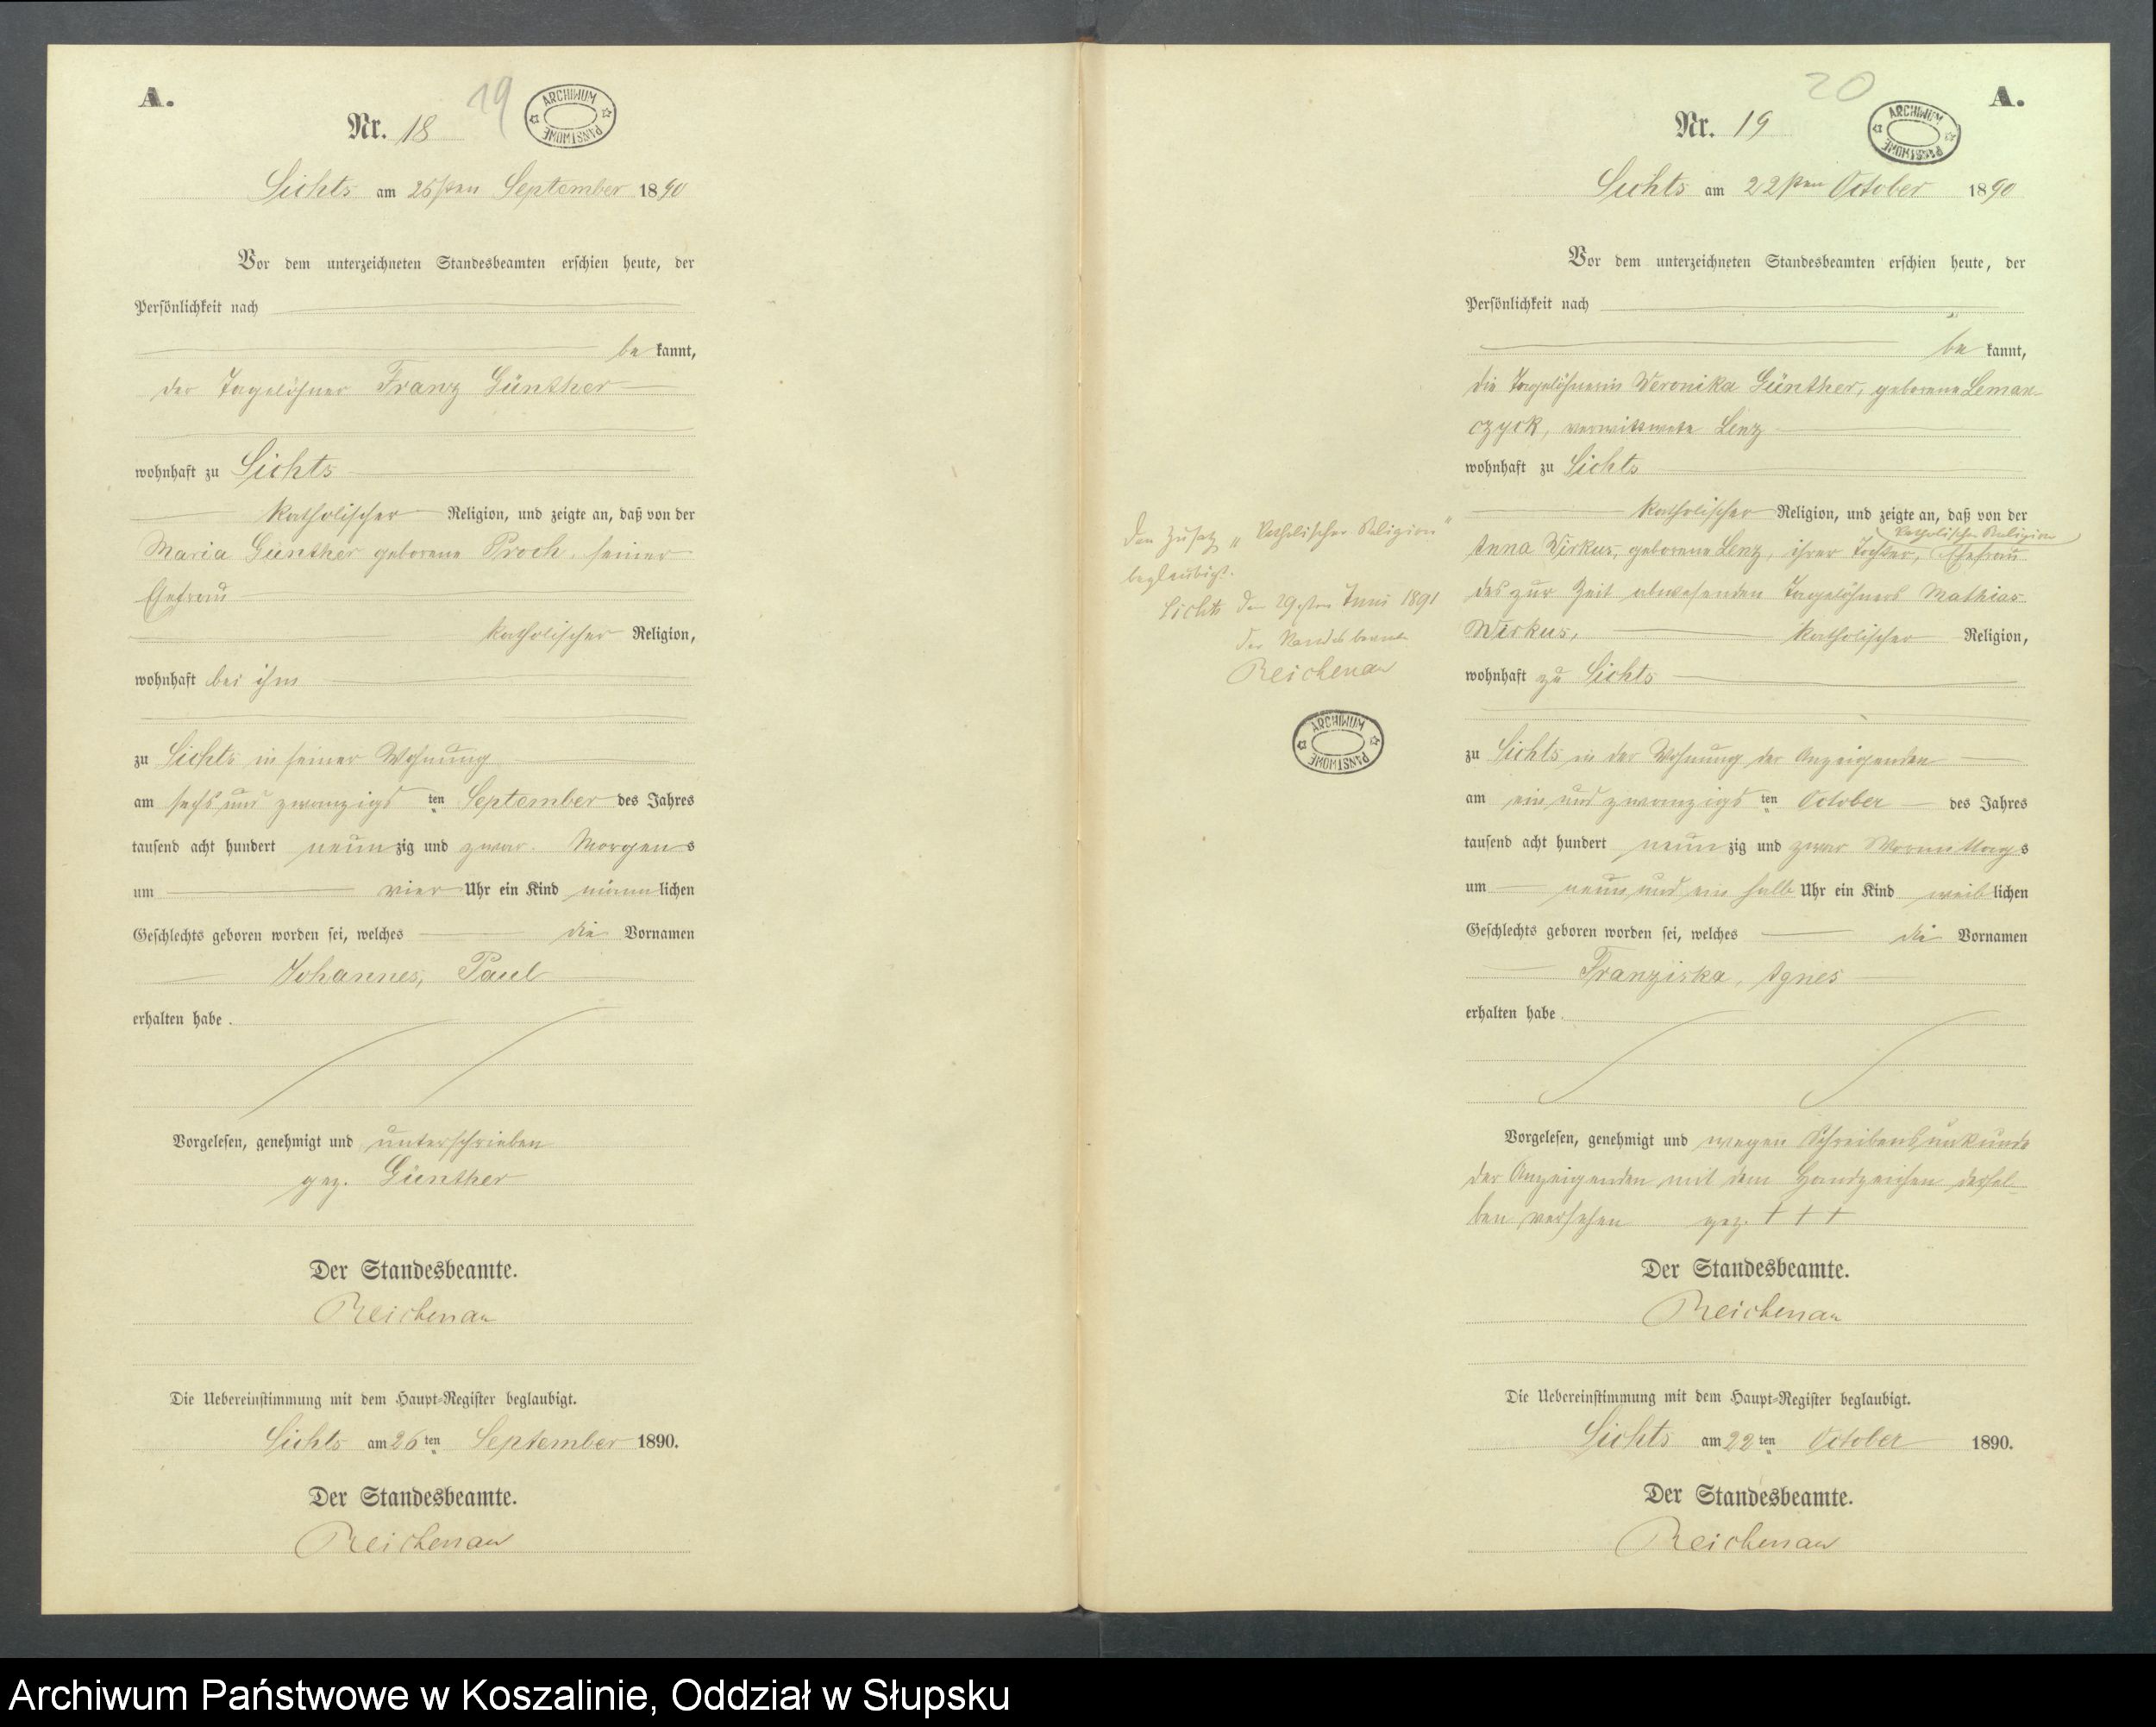 A.
Nr. 18
19
ARCHIWUM PAŃSTWOWE
Lichts am 26sten September 1890
Vor dem unterzeichneten Standesbeamten erschien heute, der
Persönlichkeit nach
be kannt,
der Tagelöhner Franz Günther
wohnhaft zu Lichts
katholischer Religion, und zeigte an, daß von der
Maria Günther geborene Proch, seiner
Ehefrau
katholischer Religion,
wohnhaft bei ihm
zu Lichts in seiner Wohnung
am sechs und zwanzigs ten September des Jahres
tausend acht hundert neunzig und zwar Morgens
um vier Uhr ein Kind männlichen
Geschlechts geboren worden sei, welches die Vornamen
Johannes, Paul
erhalten habe.
Vorgelesen, genehmigt und unterschrieben
gez. Günther
Der Standesbeamte.
Reichenau
Die Uebereinstimmung mit dem Haupt-Register beglaubigt.
Lichts am 26ten September 1890.
Der Standesbeamte.
Reichenau
20
A.
Nr. 19
ARCHIWUM PAŃSTWOWE
Lichts am 22sten October 1890
Vor dem unterzeichneten Standesbeamten erschien heute, der
Persönlichkeit nach
be kannt,
die Tagelöhnerin Weronika Günther, geborene Leman-
czyck, verwittwete Lenz
wohnhaft zu Lichts
katholischer Religion, und zeigte an, daß von der
katholischer Religion
Anna Wirkus, geborene Lenz, ihrer Tochter, Ehefrau
des zur Zeit abwesenden Tagelöhners Mathias
Wirkus, katholischer Religion,
wohnhaft zu Lichts
zu Lichts in der Wohnung der Anzeigenden
am ein und zwanzigs ten October des Jahres
tausend acht hundert neunzig und zwar Vormittags
um neun und ein halb Uhr ein Kind weiblichen
Geschlechts geboren worden sei, welches die Vornamen
Franziska, Agnes
erhalten habe.
Vorgelesen, genehmigt und wegen Schreibensunkunde
der Anzeigenden mit dem Handzeichen dersel-
ben versehen gez. + + +
Der Standesbeamte.
Reichenau
Die Uebereinstimmung mit dem Haupt-Register beglaubigt.
Lichts am 22ten October 1890.
Der Standesbeamte.
Reichenau
Den Zusatz "katholischer Religion"
beglaubigt.
Lichts den 29sten Juni 1891
der Standesbeamte
Reichenau
ARCHIWUM PAŃSTWOWE
Archiwum Państwowe w Koszalinie, Oddział w Słupsku